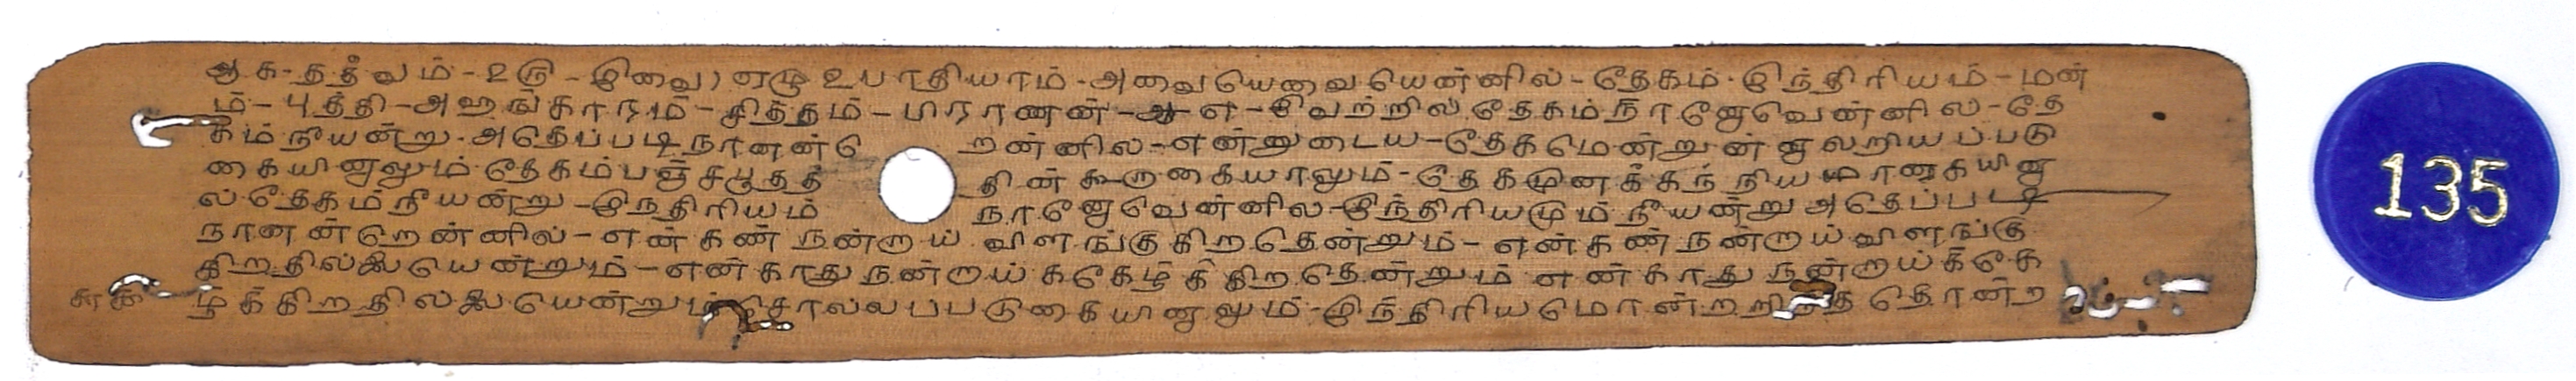 ஆக-தத்வம்-உரு-இவை) ஏழு உபாதியாம்-அவையெவையென்னில்-தேகம்-இந்திரியம்-மன
ம்-புத்தி-அஹங்காரம்-சித்தம்-பிராணன்-ஆ-எ-இவற்றில் தேகம் நானோவென்னில்-தே
கம் நீயன்று-அதெப்படி நானன்றெ ன்னில்-என்னுடைய-தேகமென்றுன்னாலறியப்படு
கையினாலும் தேகம் பஞ்சபூதத் தின் கூறுகையாலும்-தேகமுனக்கந்நியமானகயினா
ல் தேகம் நீயன்று-இந்திரியம் நானோவென்னில-இந்திரியமும் நீயன்று அதெப்படி
நானன்றென்னில்-என் கண் நன்றாய் விளங்குகிறதென்றும்-என் கண் நன்றாய் விளங்கு
கிறதில்லையென்றும்-என் காது நன்றாய்க்கேழ்க்கிறதென்றும் என் காது நன்றாய்க்கே
ழ்க்கிறதில்லையென்றும் சொல்லப்படுகையினாலும்-இந்திரியமொன்றறிந்த தொன்ற
135